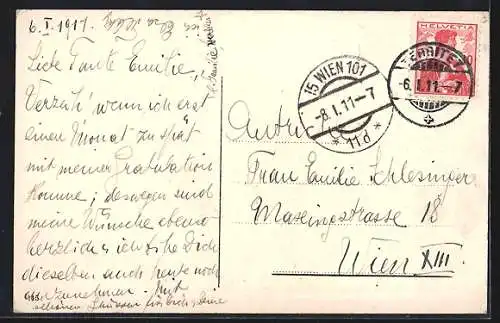 6. I. 1911.
Liebe Tante Emilie,
Verzeih' wenn ich erst
einen Monat zu spät
mit meiner Gratulation
komme; deswegen sind
meine Wünsche ebenso
herzlich u. ich bitte Dich
dieselben auch heute noch
anzunehmen. Mit
schönen Grüssen für Euch, Deine
15 WIEN 101
-8.I.11-7
* 11d *
HELVETIA
10
TERRITET
-6.I.11.-7
Frau Emilie Schlesinger
Maxingstrasse 18
Wien XIII.